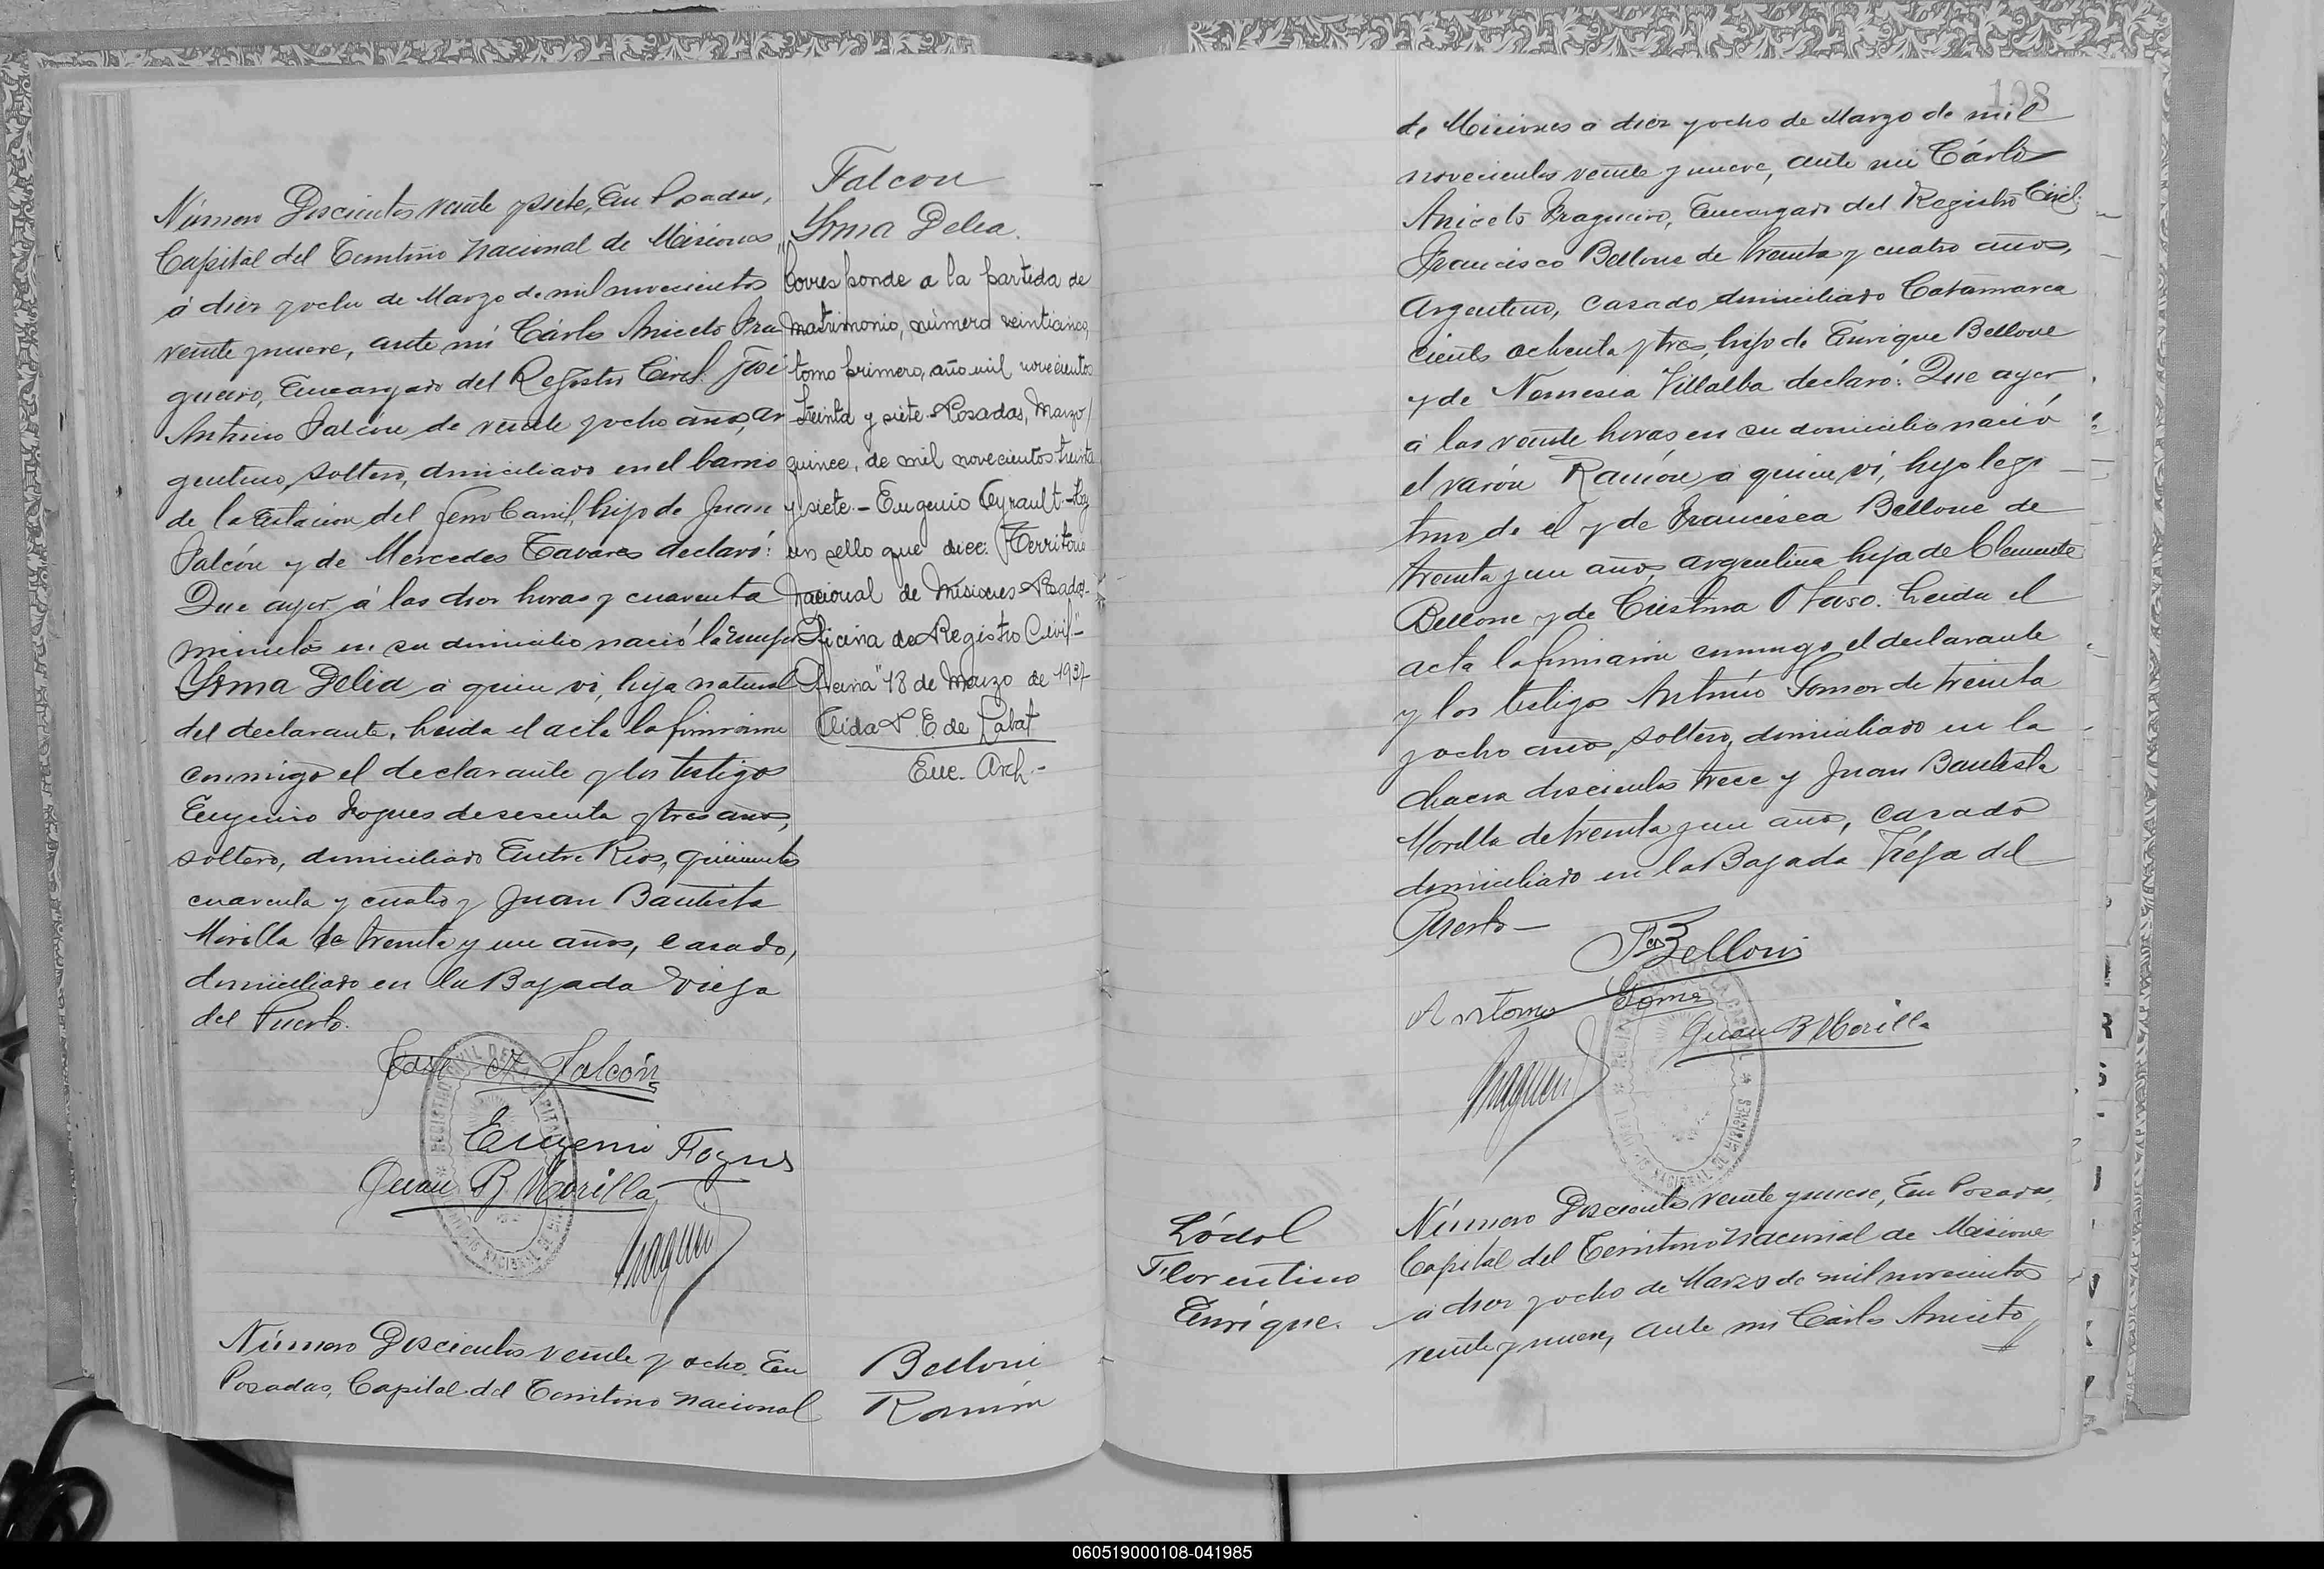 Número Doscientos veinte y siete, En Posadas,
Capital del Territorio Nacional de Misiones
á diez y ocho de Marzo de mil novecientos
veinte y nueve, ante mí Cárlos Aniceto Fra-
gueiro, Encargado del Registro Civil. José
Antonio Falcón, de veinte y ocho años, ar
gentino, soltero, domiciliado en el barrio
de la Estacion del Ferro Carril, hijo de Juan
Falcón y de Mercedes Tavares declaró:
Que ayer á las dos horas y cuarenta
minutos en su domicilio nació la mujer
Yrma Delia á quien vi, hija natural
del declarante. Leida el acta la firmaron
conmigo el declarante y los testigos
Eugenio Fogues de sesenta y tres años,
soltero, domiciliado Entre Rios, quinientos
cuarenta y cuatro y Juan Bautista
Morilla de treinta y un años, casado,
domiciliado en la Bajada Vieja
del Puerto.
José A Falcón
Eugenio Fogues
Juan B Morilla
Fragueiro
Número Doscientos veinte y ocho. En
Posadas, Capital del Territorio Nacional
Falcon
Yrma Delia.
"Corresponde a la partida de
matrimonio, número veinticinco,
tomo primero, año mil novecientos
treinta y siete. Posadas, Marzo
quince, de mil novecientos treinta
y siete.- Eugenio Eyrault.- Hay
un sello que dice: Territorio
Nacional de Misiones - Posadas-
Oficina de Registro Civil.-"
18 de Marzo de 1937
E de Labat
Enc. Arch.-
Belloni
Ramón
198
de Misiones á diez y ocho de Marzo de mil
novecientos veinte y nueve, ante mí Cárlos
Aniceto Fragueiro, Encargado del Registro Civil.
Francisco Bellone de treinta y cuatro años,
argentino, casado domiciliado Catamarca
ciento ochenta y tres, hijo de Enrique Bellone
y de Nemesia Villalba declaró: Que ayer
á las veinte horas en su domicilio nació
el varón Ramón á quien ví, hijo legi
timo de el y de Francisca Bellone de
treinta y un años, argentina hija de Clemente
Bellone y de Cristina Leida el
acta la firmaron conmigo el declarante
y los testigos Antonio Gomez de treinta
y ocho años, soltero, domiciliado en la
chacra doscientos trece y Juan Bautista
Morilla de treinta y un años, casado
domiciliado en la Bajada Vieja del
Puerto-
Fco Belloni
Antonio Gomez
Juan B Morilla
Fragueiro
Florentino
Enrique.
Número Doscientos veinte y nueve, En Posadas
Capital del Territorio Nacional de Misiones
á diez y ocho de Marzo de mil novecientos
veinte y nueve, ante mi Cárlos Aniceto
060519000108-041985